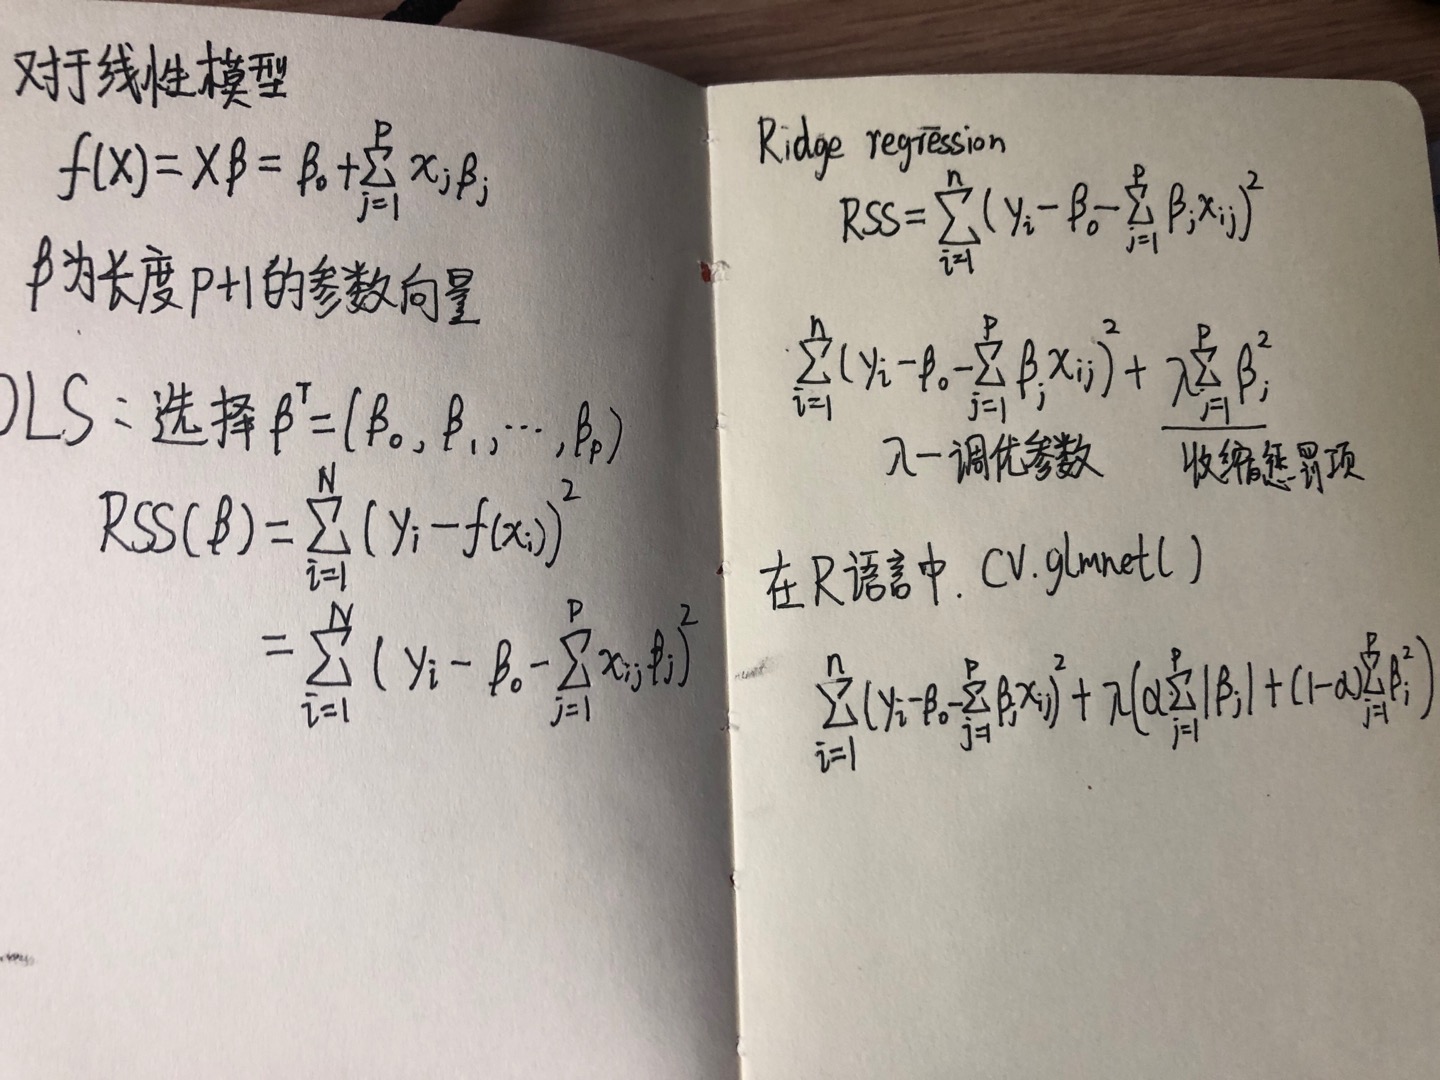 对于线性模型
f(X)=Xβ=β₀+∑_{j=1}^{p} x_jβ_j
β为长度p+1的参数向量
OLS:选择β^T=(β₀,β₁,…,β_p)
RSS(β)=∑_{i=1}^{N}(y_i-f(x_i))²
=∑_{i=1}^{N}(y_i-β₀-∑_{j=1}^{p}x_{ij}β_j)²
Ridge regression
RSS=∑_{i=1}^{n}(y_i-β₀-∑_{j=1}^{p}β_jx_{ij})²
∑_{i=1}^{n}(y_i-β₀-∑_{j=1}^{p}β_jx_{ij})²+λ∑_{j=1}^{p}β_j²
λ—调优参数 收缩惩罚项
在R语言中. CV.glmnet()
∑_{i=1}^{n}(y_i-β₀-∑_{j=1}^{p}β_jx_{ij})²+λ(α∑_{j=1}^{p}|β_j|+(1-α)∑_{j=1}^{p}β_j²)